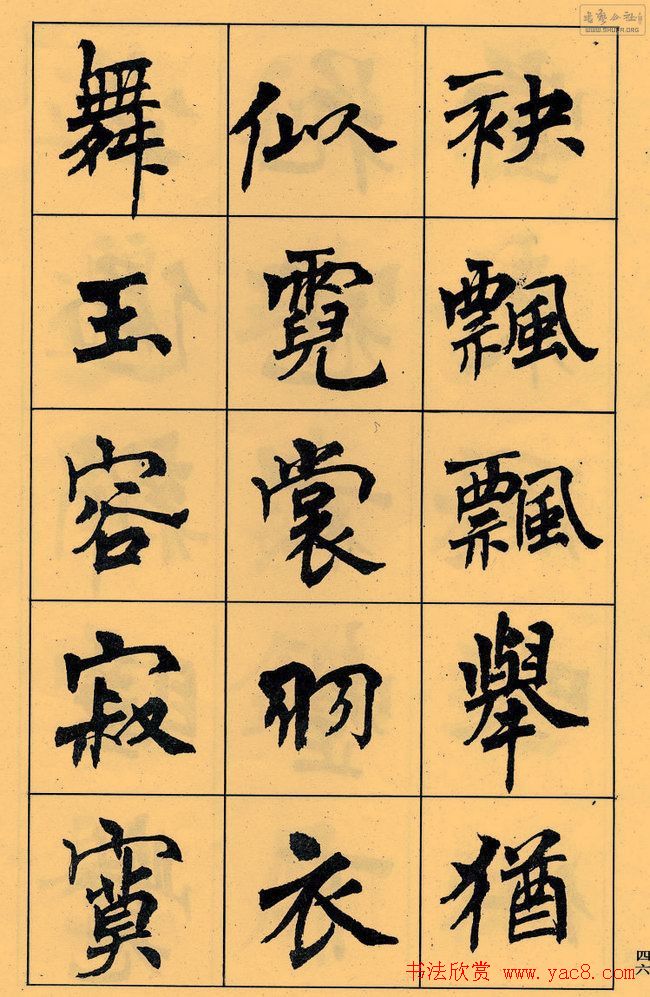 袂飄飄舉猶
似霓裳羽衣
舞玉容寂寞
四六
书法欣赏 www.yac8.com